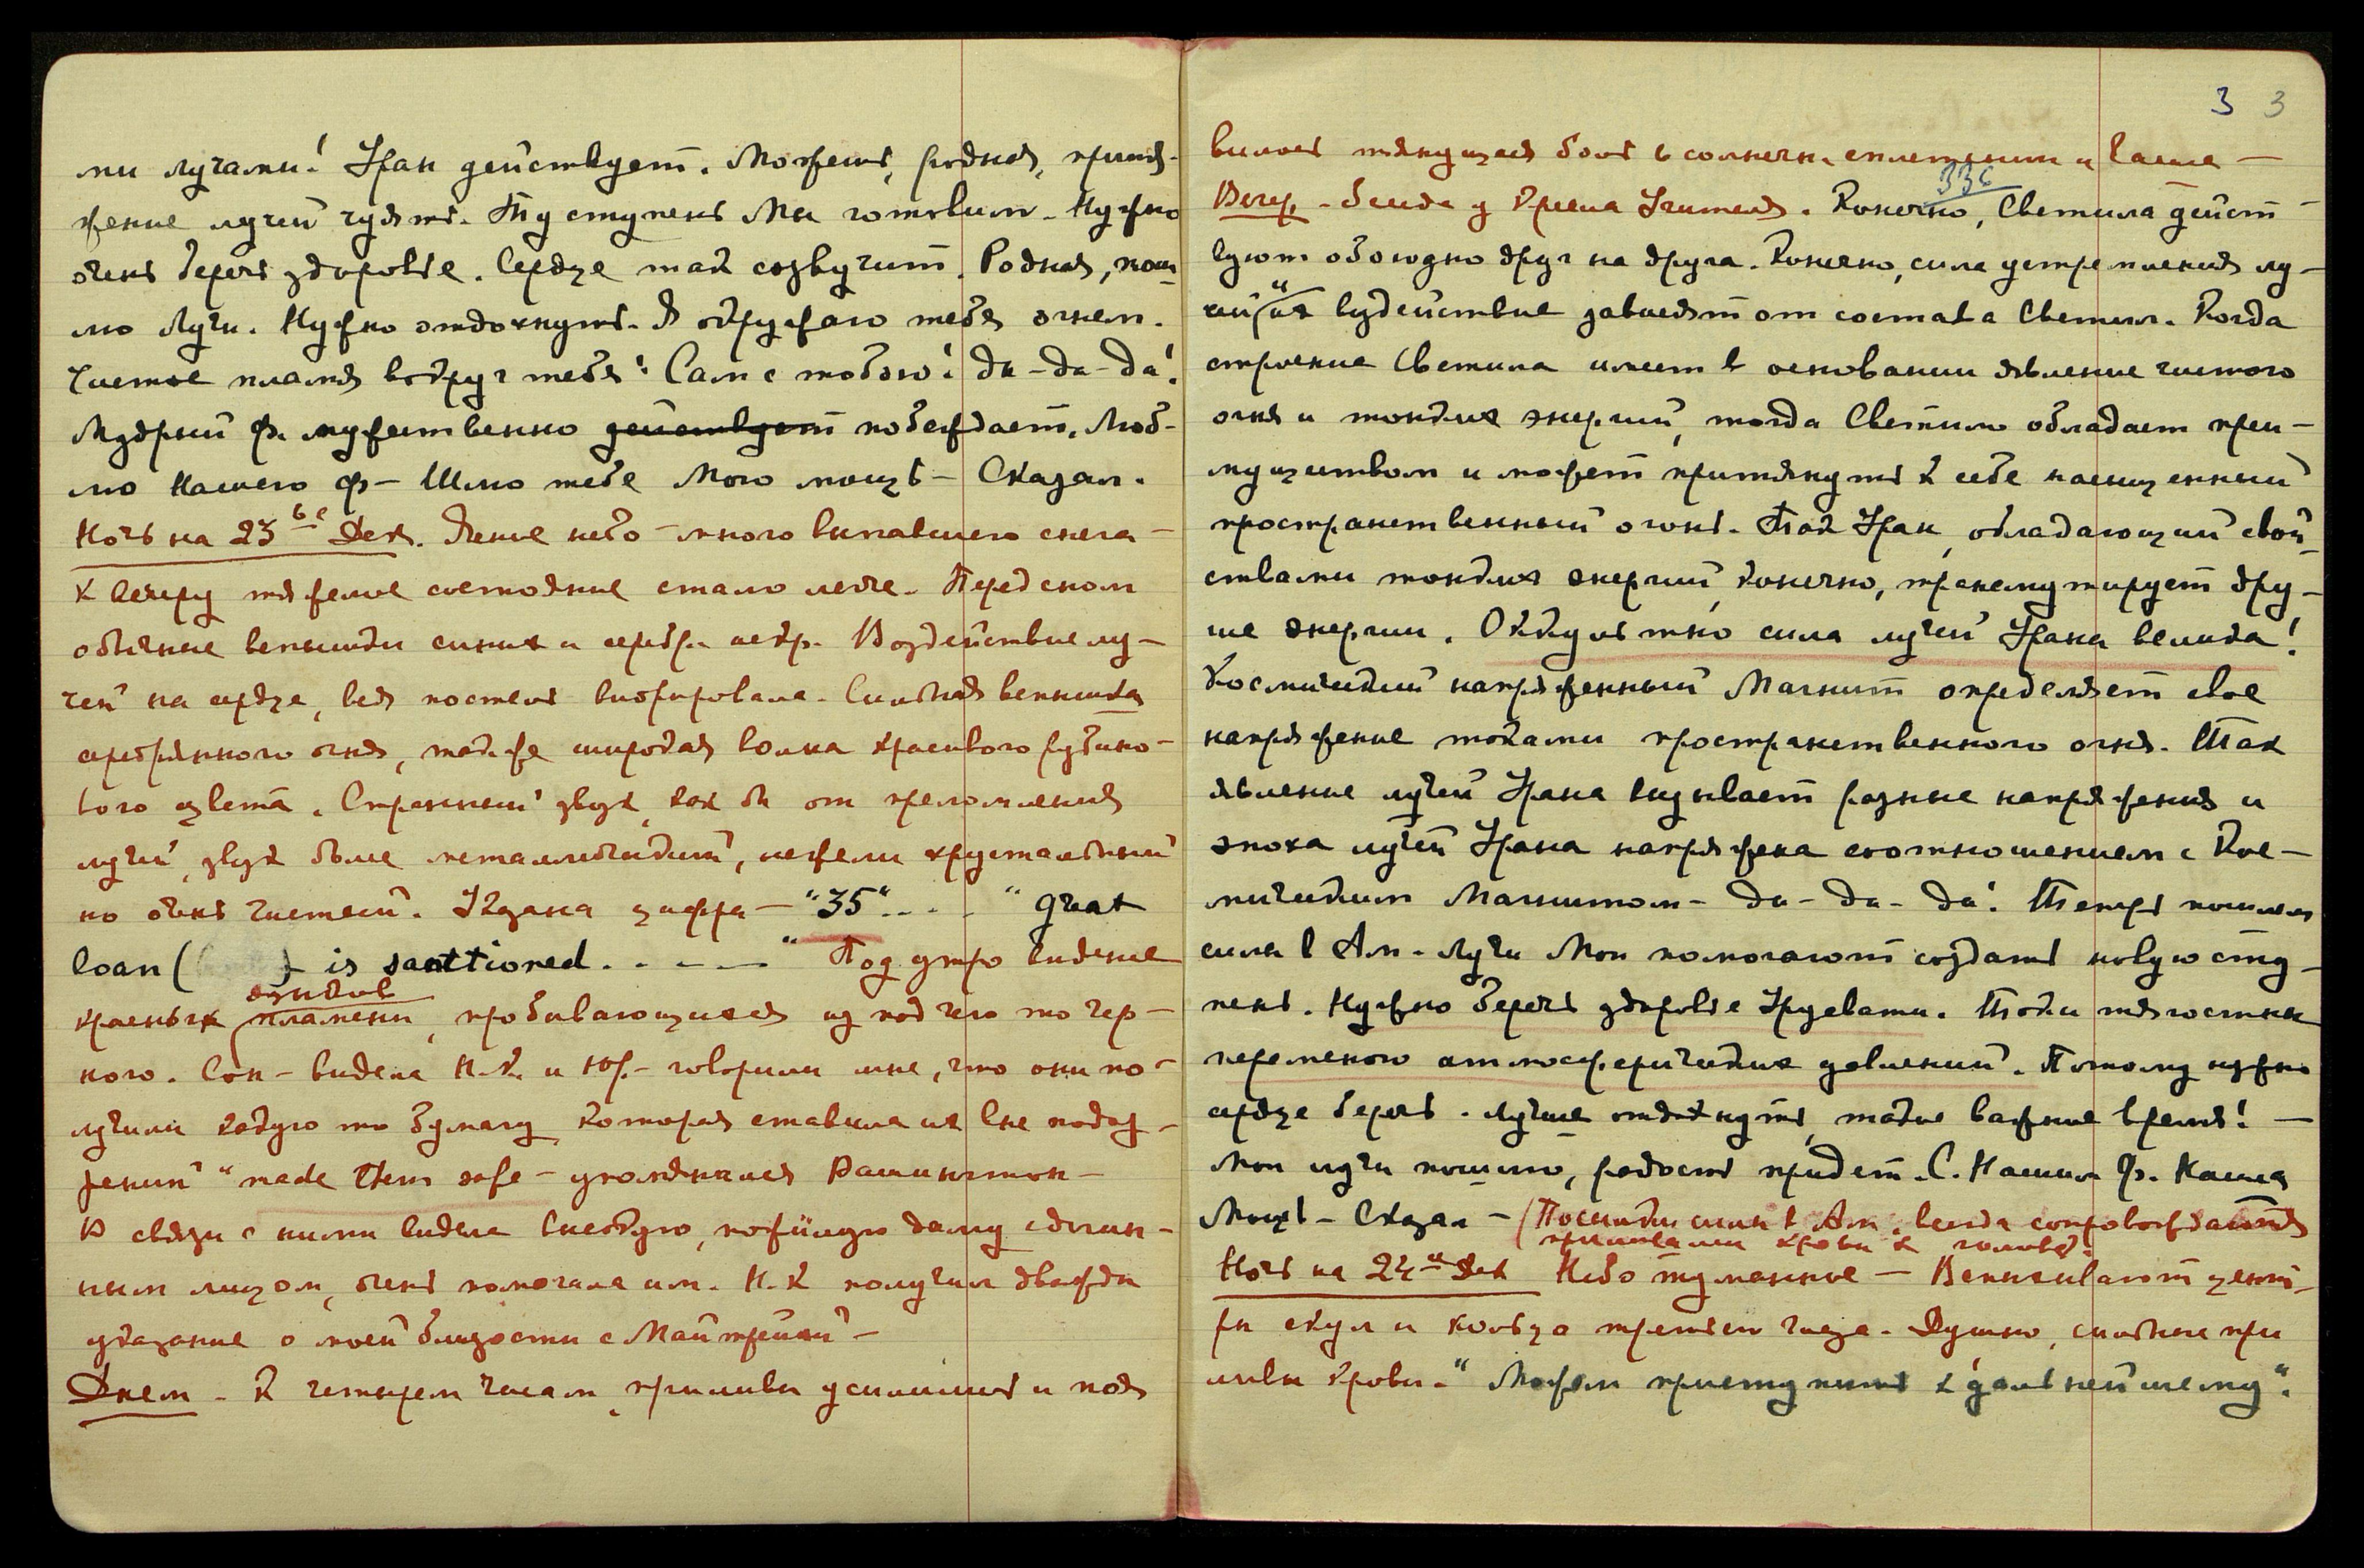 ми лучами! Уран действует. Можешь, родная, притя-
жение лучей чуять. Ту ступень Мы готовим. Нужно
очень беречь здоровье. Сердце так созвучит. Родная, пош-
лю Лучи. Нужно отдохнуть. Я окружаю тебя огнем.
Чистое пламя вокруг тебя! Сам с тобою! Да-да-да!
Мудрый Ф. мужественно действует побеждает. Люб-
лю Нашего Ф- Шлю тебе Мою мощь- Сказал.
Ночь на 23ье Дек. Ясное небо - много выпавшего снега -
К вечеру тяжелое состояние стало легче. Перед сном
обычные вспышки синих и серебр. искр. Воздействие лу-
чей на сердце, вся постель вибрировала. Сильная вспышка
серебрянного огня, также широкая волна красивого рубино-
вого цвета. Странный звук, как бы от преломления
лучей, звук более металлический, нежели хрустальный
но очень чистый. Указана цифра - "35" .... "great
loan ( ) is sanctioned. . - - - " Под утро видение
красных языков пламени, пробивающихся из под чего то чер-
ного. Сон - видела Н.К. и Юр. - говорили мне, что они по-
лучили какую то бумагу, которая ставила их вне подоз-
рений "made them safe - упомянался Вашингтон -
В связи с ними видела высокую, пожилую даму с длин-
ным лицом, очень помогала им. Н.К получил дважды
указание о моей близости с Майтрейей -
Днем - К четырем часам, приливы усилились и поя
3 3
вилась тянущая боль в солнечн. сплетении и
336
Вечер. - беседа у Кресла Учителя. Конечно, Светила дейст-
вуют обоюдно друг на друга. Конечно, сила устремления лу-
чей и их воздействие зависят от состава Светил. Когда
строение Светила имеет в основании явление чистого
огня и тонких энергий, тогда Светило обладает преи-
муществом и может притянуть к себе насыщенный
пространственный огонь. Так Уран, обладающий свой-
ствами тонких энергий, конечно, трансмутирует дру-
гие энергии. Оккультно сила лучей Урана велика!
Космический напряженный Магнит определяет свое
напряжение токами пространственного огня. Так
явление лучей Урана вызывает разные напряжения и
эпоха лучей Урана напряжена соотношением с Кос-
мическим Магнитом - Да-да-да! Теперь пошлем
силы в Ам. Лучи Мои помогают создать новую сту-
пень. Нужно беречь здоровье Урусвати. Токи тягостны
переменою атмосферических давлений. Потому нужно
сердце беречь. Лучше отдохнуть, такое важное время! -
Мои лучи пошлю, радость придет. С. Нашим Ф. Наша
Мощь - Сказал - (Посылки силы в Ам. всегда сопровождаются
приливами крови к голове)
Ночь на 24ое Дек Небо туманное - Вспыхивают цент-
ры скул и кольцо третьего глаза. Душно, сильные при
ливы крови. "Можем приступить к дальнейшему".